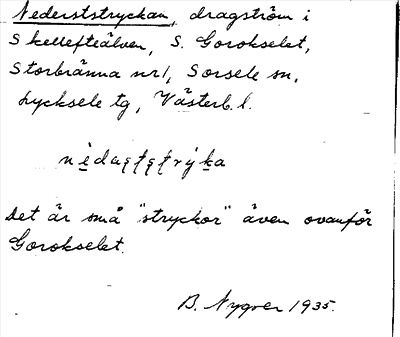 Nederststryckan, dragström i
Skellefteälven, S. Gorokselet,
Storbränna nr 1, Sorsele sn,
Lycksele tg, Västerb. l.
Det är små "stryckor" även ovanför
Gorokselet.
B. Nygren 1935.